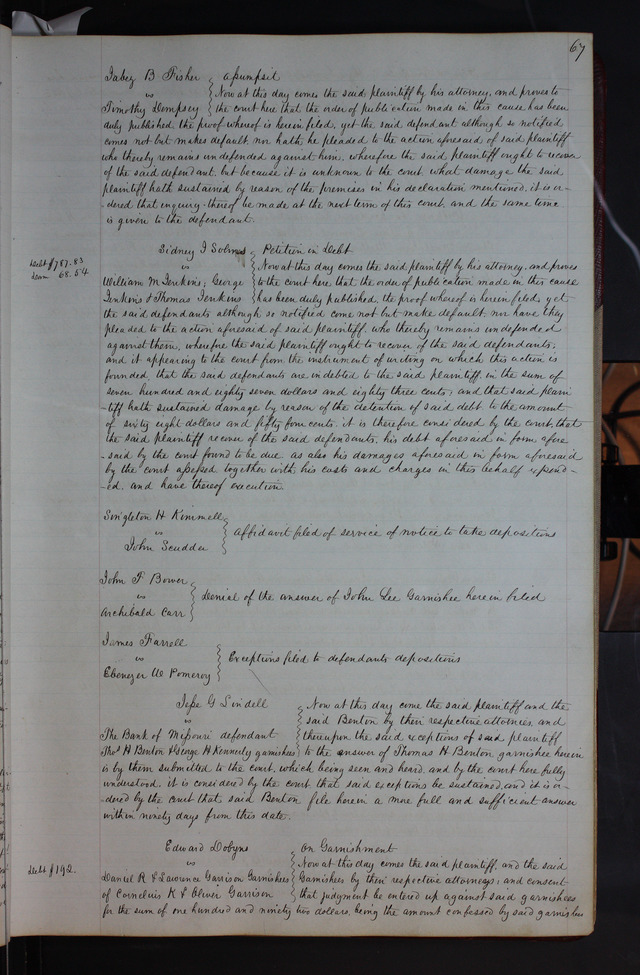 67
Jabez B. Fisher } assumpsit
vs } Now at this day comes the said plaintiff by his attorney, and proves to
Timothy Dempsey } the court here that the order of publication made in this cause has been
duly published, the proof whereof is herein filed, yet the said defendant although so notified
comes not but makes default nor hath he pleaded to the action aforesaid of said plaintiff
who thereby remains undefended against him, wherefore the said plaintiff ought to recover
of the said defendant, but because it is unknown to the court what damage the said
plaintiff hath sustained by reason of the premises in his declaration mentioned, it is or-
-dered that enquiry thereof be made at the next term of this court, and the same time
is given to the defendant.
Sidney J Solms } Petition in Debt
Debt $787.83
Dam 68.54
vs } Now at this day comes the said plaintiff by his attorney, and proves
William M Jenkins, George } to the court here that the order of publication made in this cause
Jenkins & Thomas Jenkins } has been duly published, the proof whereof is herein filed, yet
the said defendants although so notified come not but make default nor have they
pleaded to the action aforesaid of said plaintiff, who thereby remains undefended
against them, wherefore the said plaintiff ought to recover of the said defendants;
and it appearing to the court from the instrument of writing on which this action is
founded that the said defendants are indebted to the said plaintiff in the sum of
seven hundred and eighty seven dollars and eighty three cents; and that said plain
-tiff hath sustained damage by reason of the detention of said debt to the amount
of sixty eight dollars and fifty four cents, it is therefore considered by the court, that
the said plaintiff recover of the said defendants, his debt aforesaid in form afore
-said by the court found to be due, as also his damages aforesaid in form aforesaid
by the court assessed together with his costs and charges in this behalf expend-
-ed. and have thereof execution.
Singleton H Kimmell }
vs } affidavit filed of service of notice to take depositions
John Scudder }
John F Bower }
vs } Denial of the answer of John Lee Garnishee herein filed
Archibald Carr }
James Farrell }
vs } Exceptions filed to defendants depositions
Ebenezer W Pomeroy }
Jesse G Lindell } Now at this day come the said plaintiff and the
vs } said Benton by their respective attornies and
The Bank of Missouri defendant } thereupon the said exceptions of said plaintiff
Thos H Benton & George H Kennerly garnishees } to the answer of Thomas H. Benton, garnishee herein
is by them submitted to the court, which being seen and heard, and by the court here fully
understood, it is considered by the court that said exceptions be sustained, and it is or-
-dered by the court that said Benton file herein a more full and sufficient answer
within ninety days from this date.
Edward Dobyns } on Garnishment
Debt $192.
vs } Now at this day comes the said plaintiff, and the said
Daniel R & Lawrence Garrison Garnishees } Garnishees by their respective attorneys, and consent
of Cornelius K & Oliver Garrison } that judgment be entered up against said garnishees
for the sum of one hundred and ninety two dollars, being the amount confessed by said garnishees